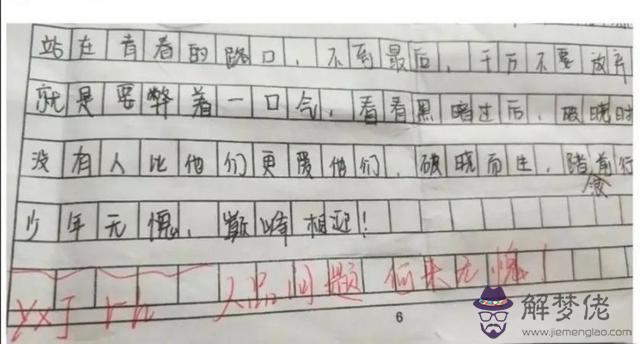 站在青春的路口，不到最后，千万不要放弃
就是要弊着一口气，看看黑暗过后，破晓时
没有人比他们更爱他们，破晓而生，踏前行
愈
少年无愧，巅峰相迎！
yxJ rh 人品问题 何来无愧！
6
解梦佬
www.jiemenglao.com